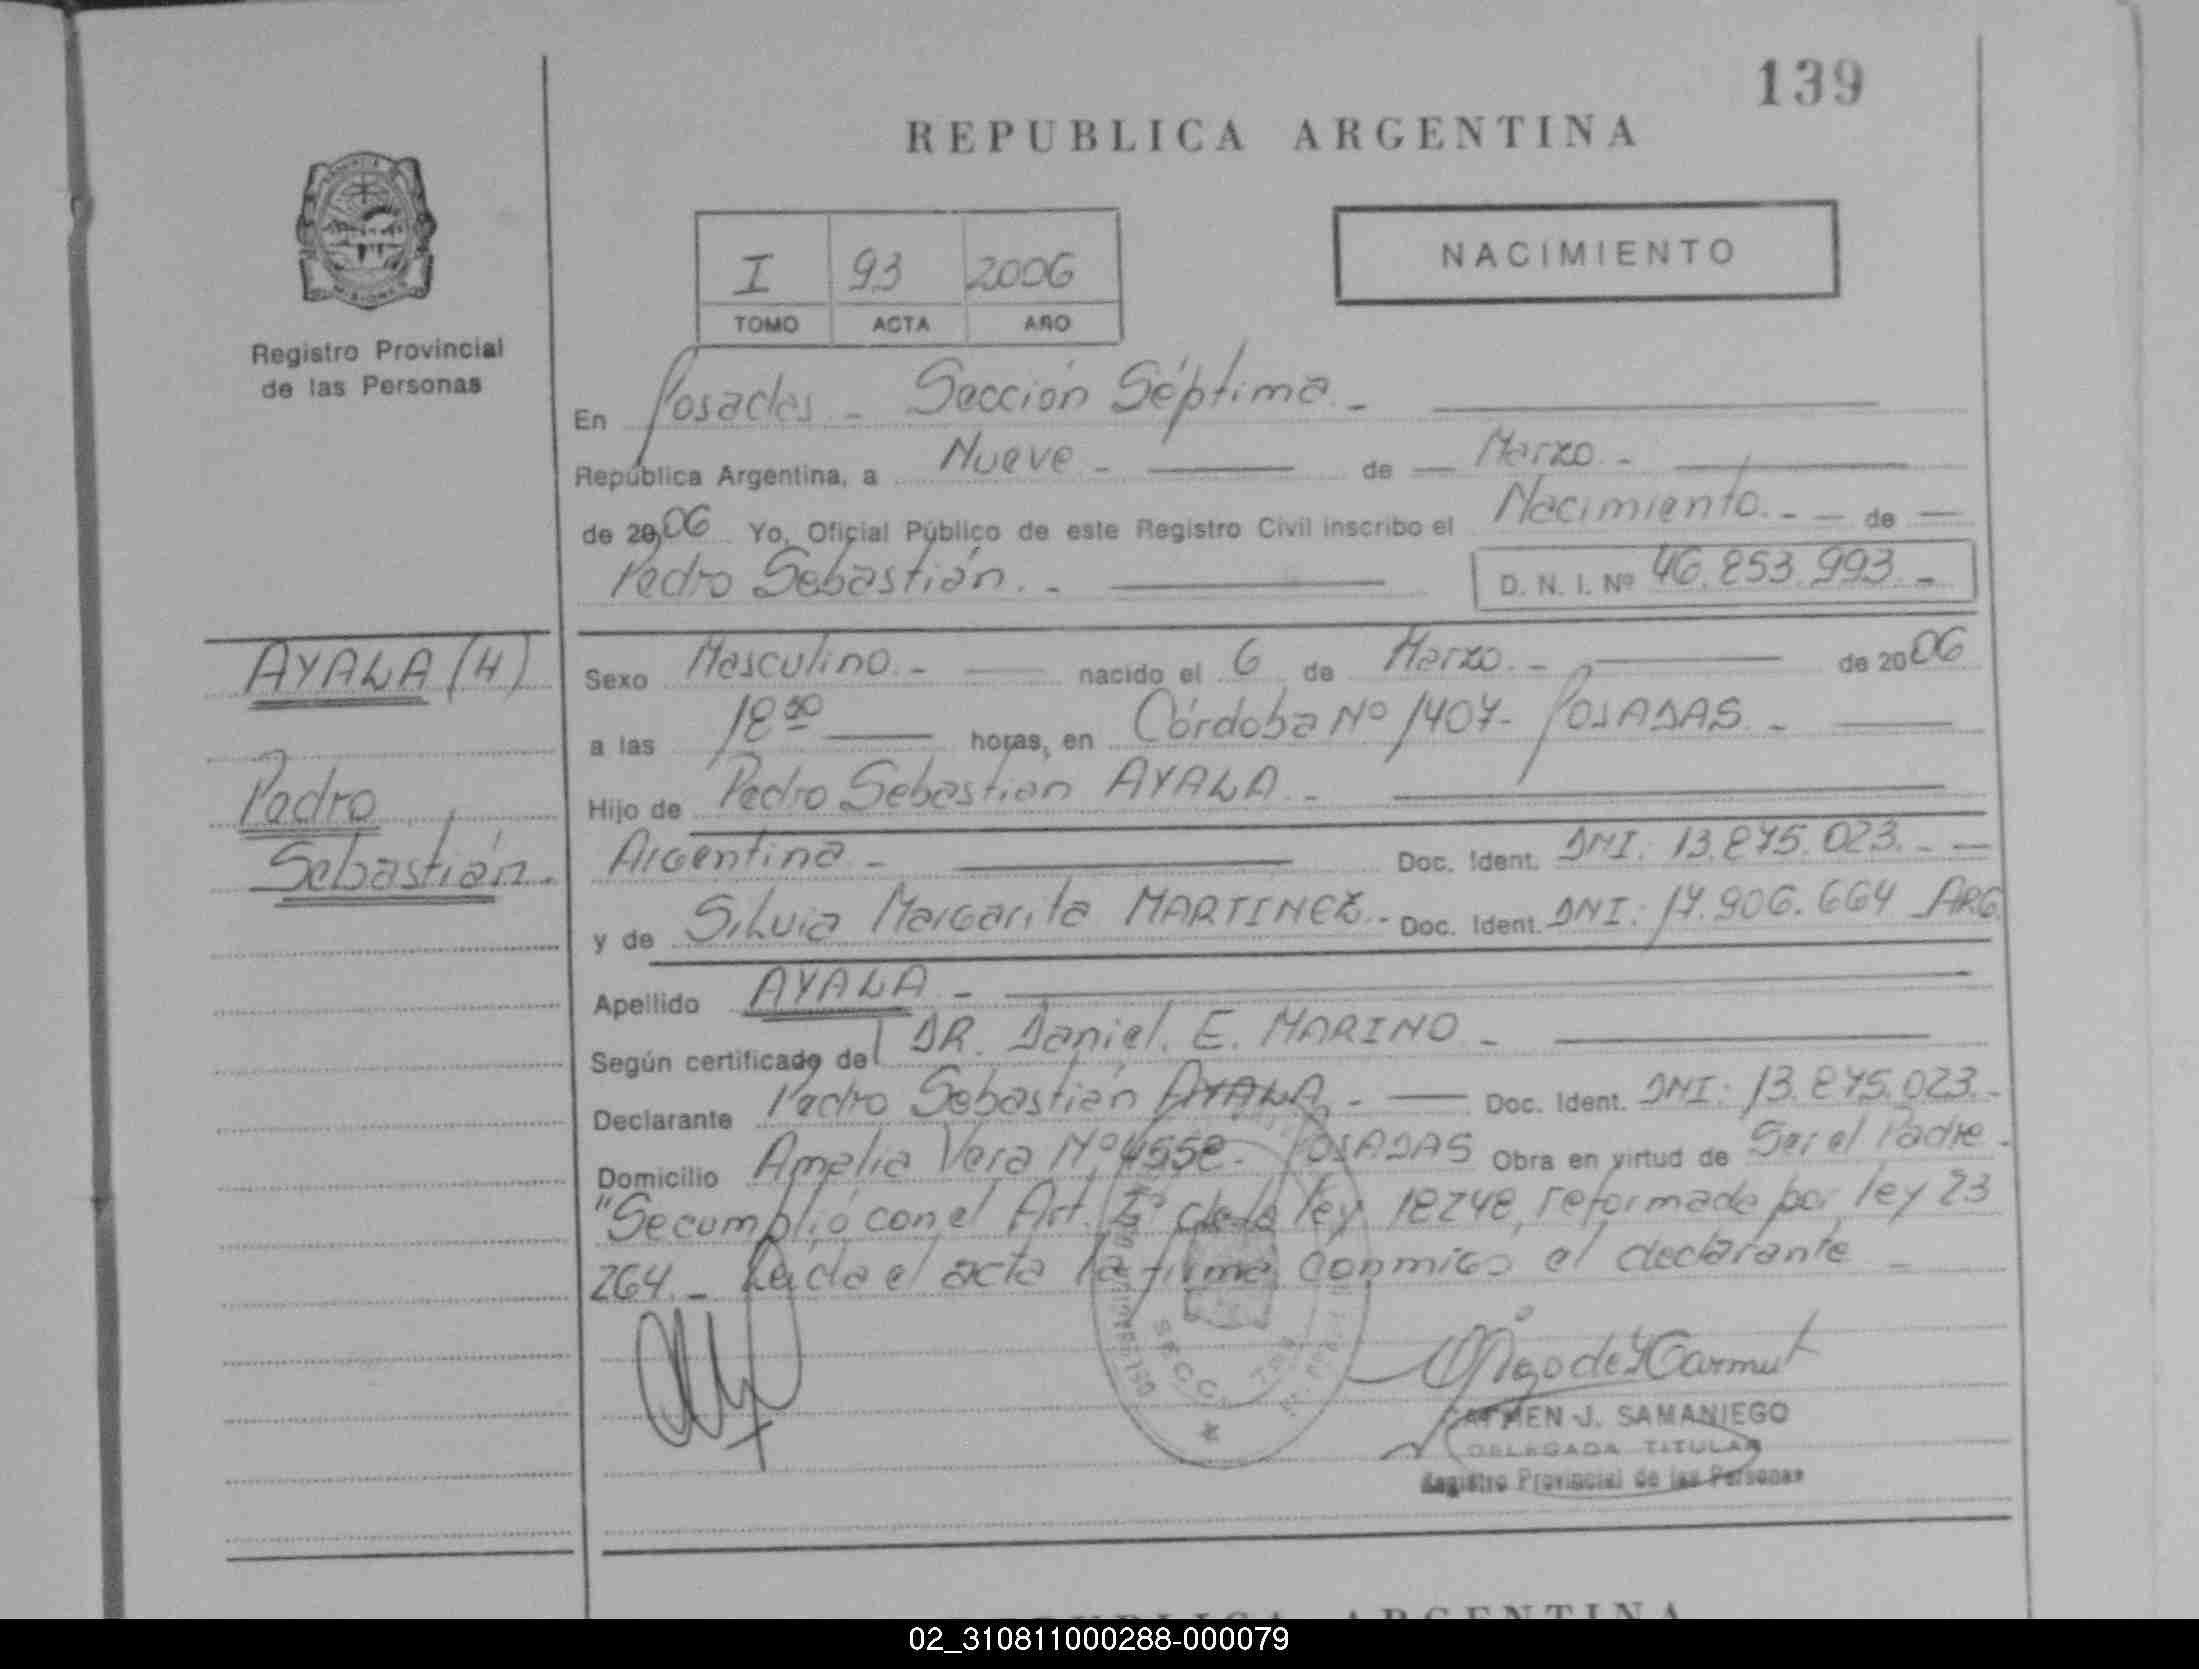 139
REPUBLICA ARGENTINA
NACIMIENTO
I 93 2006
TOMO ACTA AÑO
Registro Provincial
de las Personas
En Posadas - Sección Séptima. -
República Argentina, a Nueve - de Marzo. -
de 2006 Yo, Oficial Público de este Registro Civil inscribo el Nacimiento. - - de
Pedro Sebastián. - D. N. I. Nº 46.853.993. -
AYALA (H)
Pedro
Sebastián.
Sexo Masculino. - nacido el 6 de Marzo. - de 2006
a las 18 horas, en Córdoba Nº 1407- POSADAS. -
Hijo de Pedro Sebastian AYALA. -
Argentina - Doc. Ident. DNI: 13.875.023. - -
y de Silvia Margarita MARTINEZ. - Doc. Ident. DNI: 17.906.664 ARG.
Apellido AYALA. -
Según certificado del DR. Daniel. E. MARINO -
Declarante Pedro Sebastián AYALA, - Doc. Ident. DNI: 13.875.023. -
Domicilio Amelia Vera Nº 4558- POSADAS Obra en virtud de Ser el Padre.
"Se cumplió con el Art. 2º de la ley 18248, reformada por ley 23
264. - Leida el acta la firma conmigo el declarante -
SECC. 7ma
CARMEN J. SAMANIEGO
DELEGADA TITULAR
Registro Provincial de las Personas
REPUBLICA ARGENTINA
02_310811000288-000079